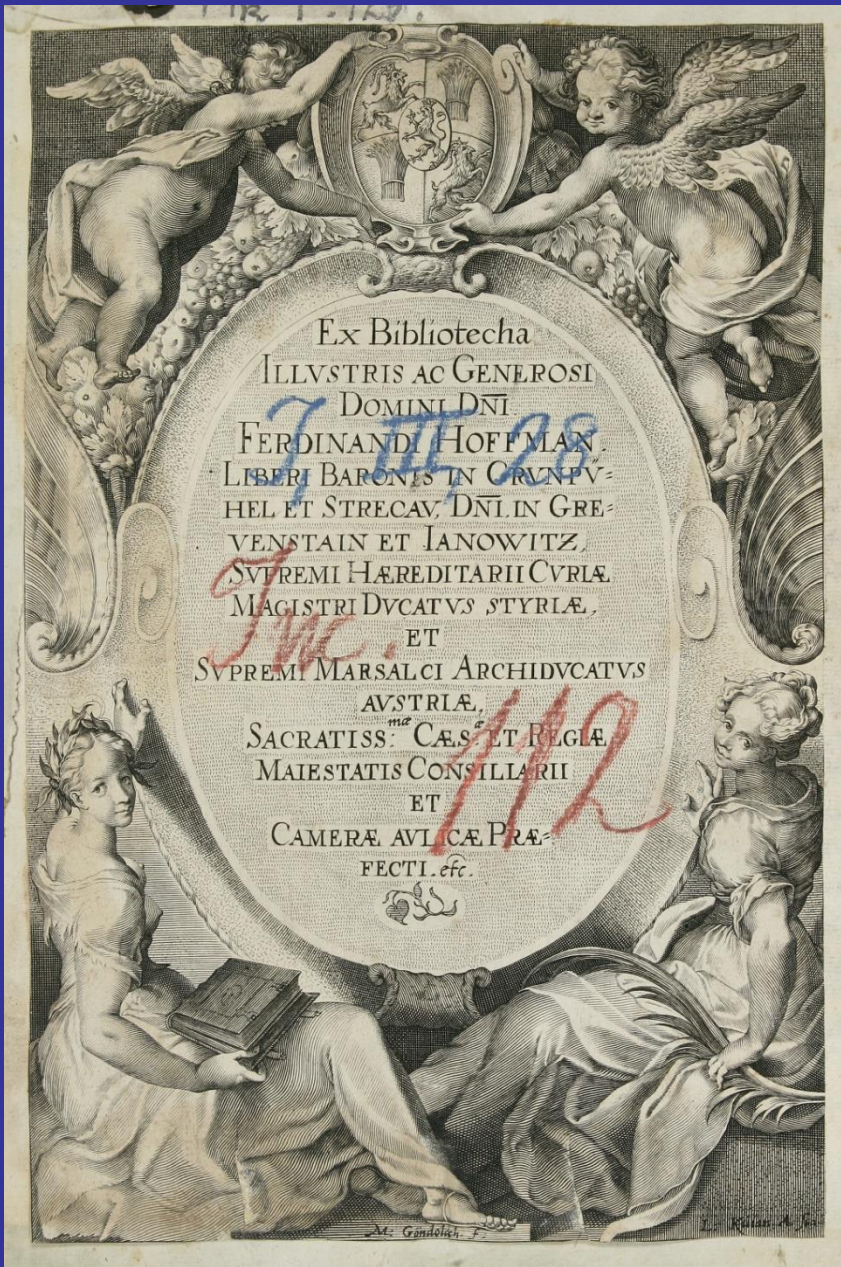 Ex Bibliotecha
ILLVSTRIS AC GENEROSI
DOMINI DN̄I
FERDINANDI HOFFMAN.
LIBERI BARONIS IN GRVNPV̈=
HEL ET STRECAV, DN̄I. IN GRE=
VENSTAIN ET IANOWITZ,
SVPREMI HÆREDITARII CVRIÆ
MAGISTRI DVCATVS STYRIÆ,
ET
SVPREMI MARSALCI ARCHIDVCATVS
AVSTRIÆ,
SACRATISS: mæ CÆS æ ET REGIÆ
MAIESTATIS CONSILIARII
ET
CAMERÆ AVLICÆ PRÆ=
FECTI. etc.
I, III, 28
Inc.
112
M. Göndolich. F.
L. Kilian A.